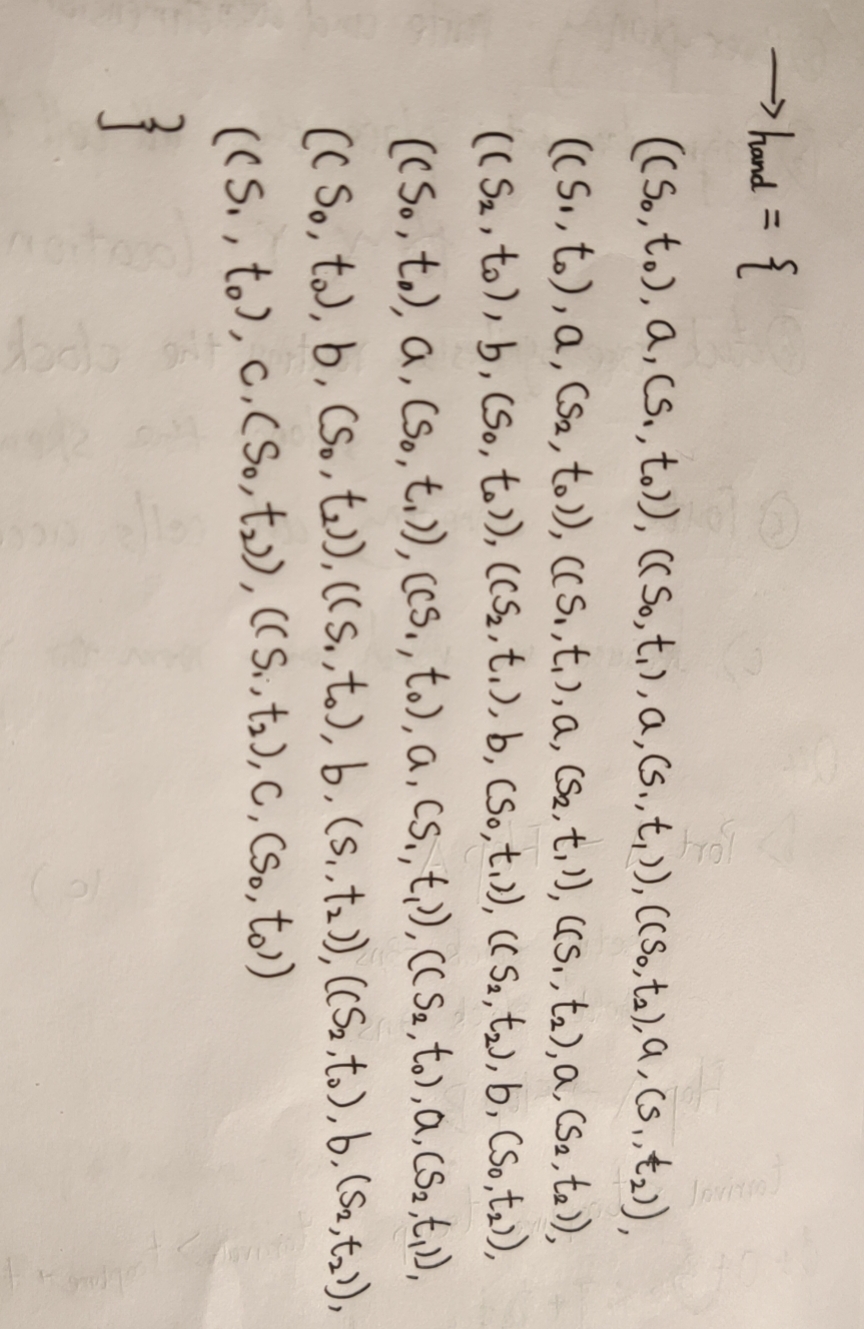 → hand = {
((s₀, t₀), a, (s₁, t₀)), ((s₀, t₁), a, (s₁, t₁)), ((s₀, t₂), a, (s₁, t₂)),
((s₁, t₀), a, (s₂, t₀)), ((s₁, t₁), a, (s₂, t₁)), ((s₁, t₂), a, (s₂, t₂)),
((s₂, t₀), b, (s₀, t₀)), ((s₂, t₁), b, (s₀, t₁)), ((s₂, t₂), b, (s₀, t₂)),
((s₀, t₀), a, (s₀, t₁)), ((s₁, t₀), a, (s₁, t₁)), ((s₂, t₀), a, (s₂, t₁)),
((s₀, t₀), b, (s₀, t₂)), ((s₁, t₀), b, (s₁, t₂)), ((s₂, t₀), b, (s₂, t₂)),
((s₁, t₀), c, (s₀, t₂)), ((s₁, t₂), c, (s₀, t₀))
}